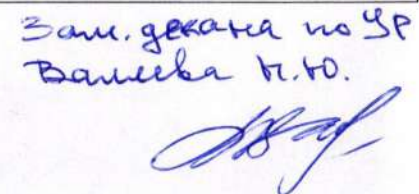 Зам. декана по УР
Валеева Н.Ю.